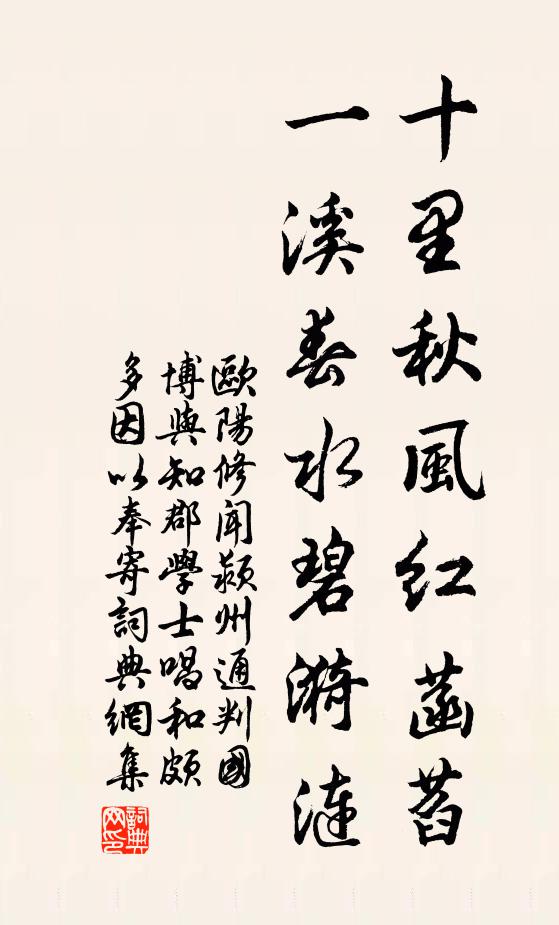 十里秋風紅菡萏
一溪春水碧漪漣
歐陽修聞潁州通判國
博與知郡學士唱和頗
多因以奉寄詞典網集
詞典網印